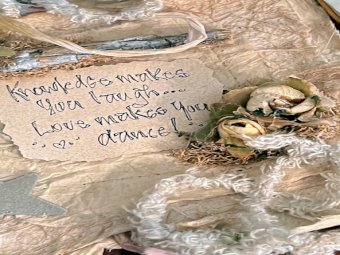 Knowledge makes
you laugh...
Love makes you
dance!